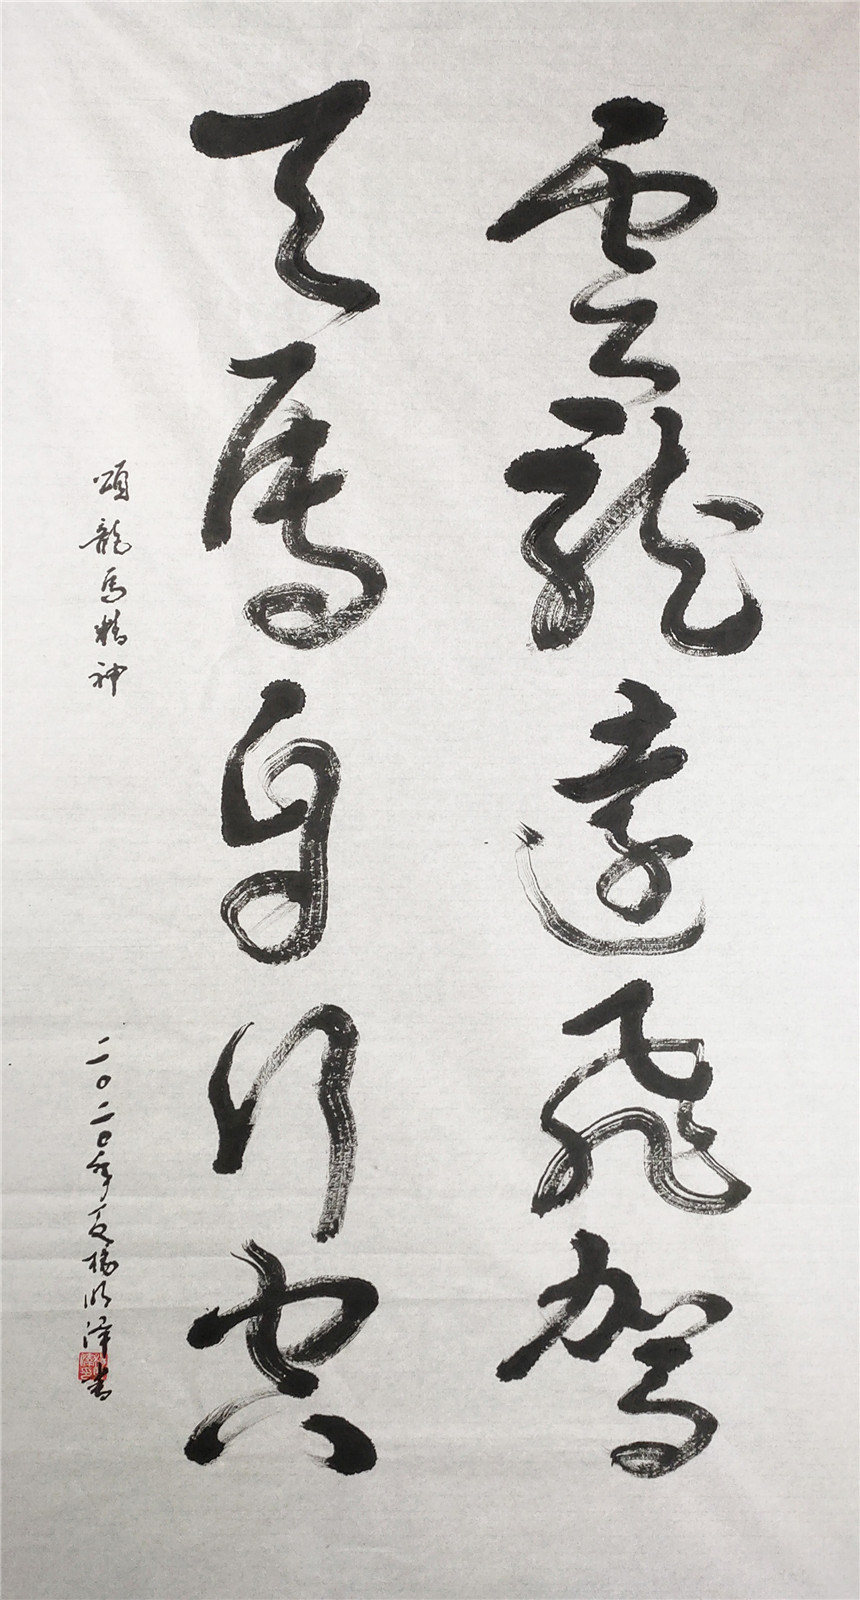 雲龍遠飛駕
天馬自行空
頌龍馬精神
二〇二〇年夏楊明澤書